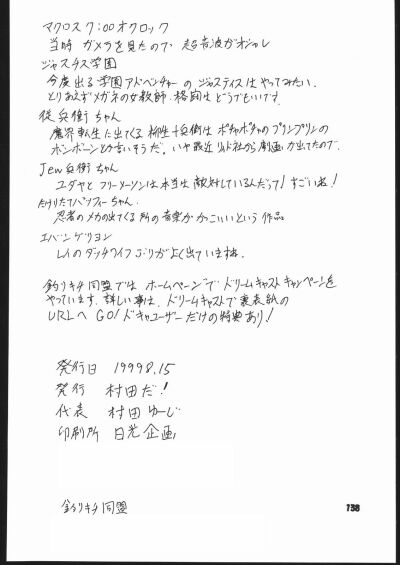 マクロス7:00オクロック
当時 ガメラを見たので 超音波がオシャレ
ジャスチス学園
今度出る学園アドベンチャーの ジャスティスはやってみたい.
とりあえずメガネの女教師.格闘はどうでもいいです.
従兵衛ちゃん
魔界転生に出てくる 柳生十兵衛は ポチャポチャのプリンプリンの
ボンボーンとか言いそうだ。いや最近 リイド社から劇画が出てたので.
Jew兵衛ちゃん
ユダヤと フリーメーソンは本当は 敵対しているんだって!すごいね!
たけりたてバッフィーちゃん.
忍者のメカの出てくる所の音楽がかっこいいという作品
エバンゲリヨン
レイのダッチワイフぶりがよく出ていますね.
釣りキチ同盟では ホームページで ドリームキャストキャンペーンを
やっています.詳しい事は.ドリームキャストで裏表紙の
URLへ GO!ドキャユーザーだけの特典あり!
発行日 1999 8.15
発行 村田だ!
代表 村田ゆーじ
印刷所 日光企画
釣りキチ同盟
738